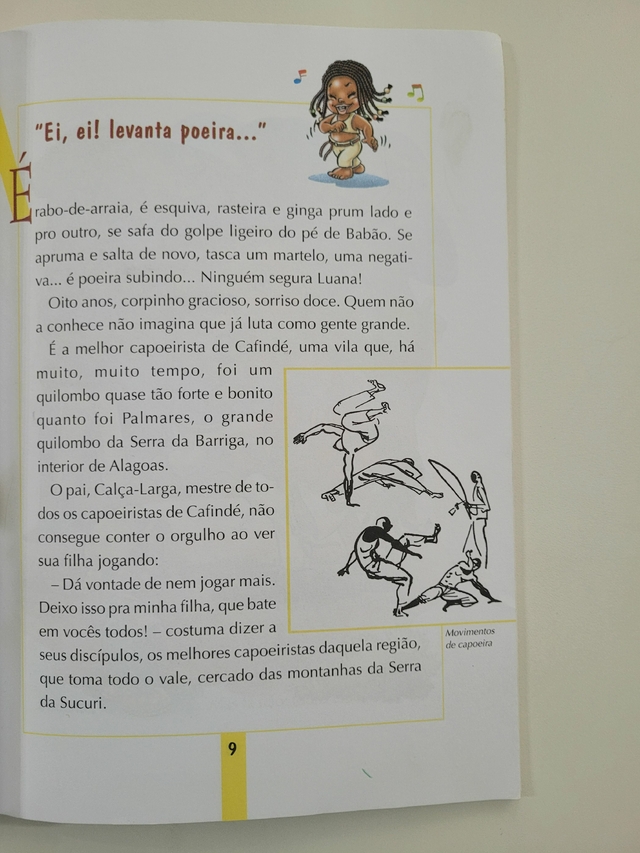 "Ei, ei! levanta poeira..."
É rabo-de-arraia, é esquiva, rasteira e ginga prum lado e
pro outro, se safa do golpe ligeiro do pé de Babão. Se
apruma e salta de novo, tasca um martelo, uma negati-
va... é poeira subindo... Ninguém segura Luana!
Oito anos, corpinho gracioso, sorriso doce. Quem não
a conhece não imagina que já luta como gente grande.
É a melhor capoeirista de Cafindé, uma vila que, há
muito, muito tempo, foi um
quilombo quase tão forte e bonito
quanto foi Palmares, o grande
quilombo da Serra da Barriga, no
interior de Alagoas.
O pai, Calça-Larga, mestre de to-
dos os capoeiristas de Cafindé, não
consegue conter o orgulho ao ver
sua filha jogando:
– Dá vontade de nem jogar mais.
Deixo isso pra minha filha, que bate
em vocês todos! – costuma dizer a
seus discípulos, os melhores capoeiristas daquela região,
que toma todo o vale, cercado das montanhas da Serra
da Sucuri.
Movimentos
de capoeira
9